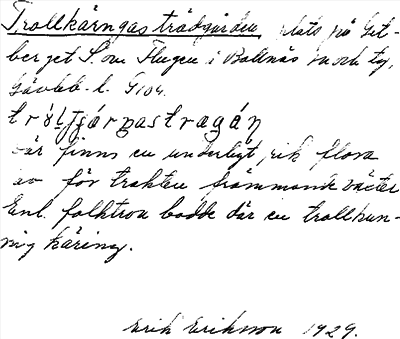 Trollkärngas trädgården, plats på Get-
berget S. om Flugen i Bollnäs sn och tg,
Gävleb. l. G104.
där finns en underligt rik flora
av för trakten främmande växter
Enl. folktron bodde där en trollkun-
nig käring.
Erik Eriksson 1929.